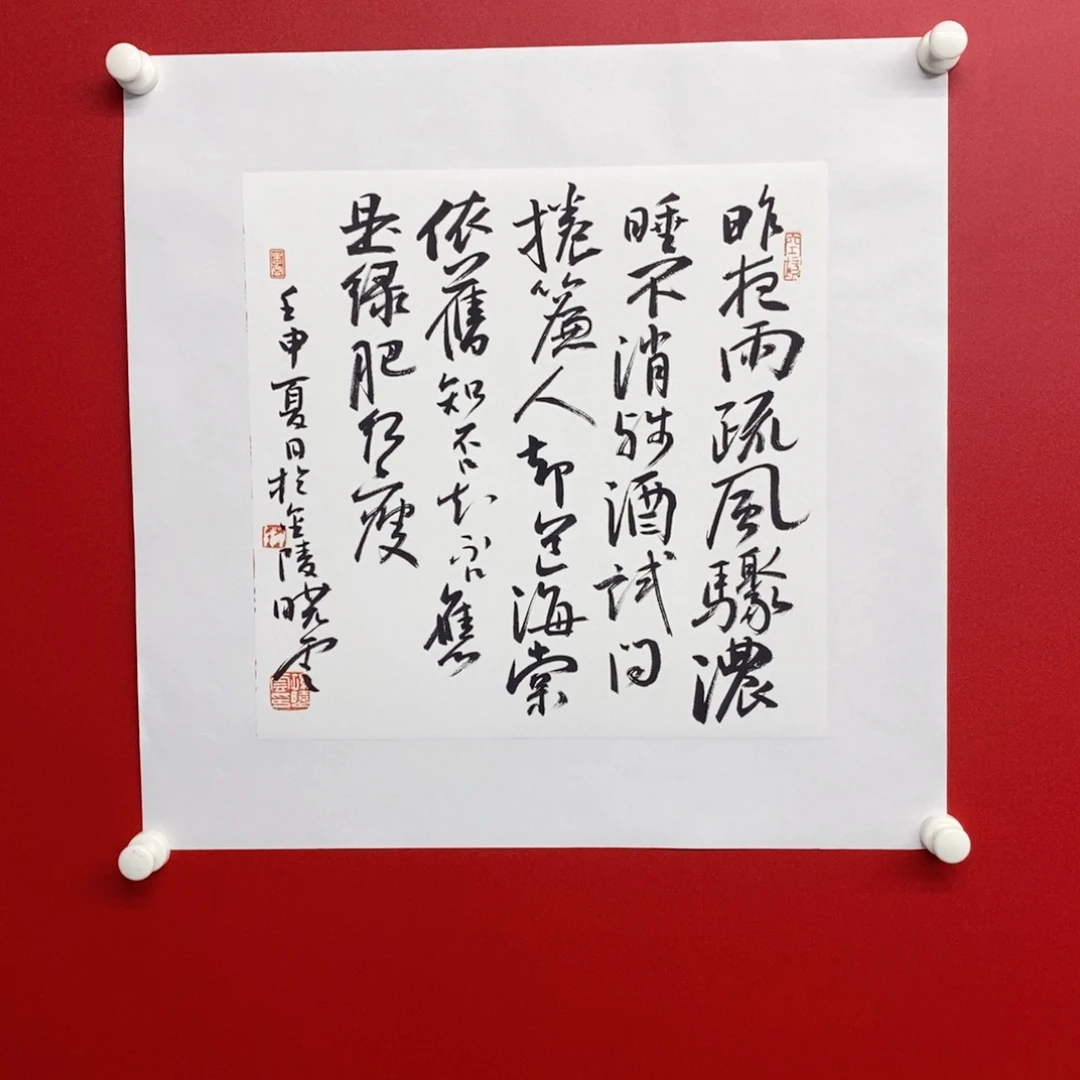 昨夜雨疏風驟濃
睡不消殘酒試問
捲簾人却道海棠
依舊知否知否應
是緑肥紅瘦
壬申夏日於金陵曉雲